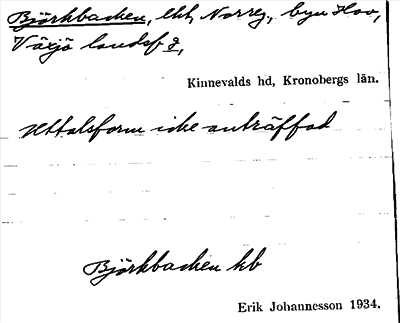 Björkbacken, lht, Norreg, byn Hov,
Växjö landsf g,
Kinnevalds hd, Kronobergs län.
Uttalsform icke anträffad
Björkbacken kb
Erik Johannesson 1934.